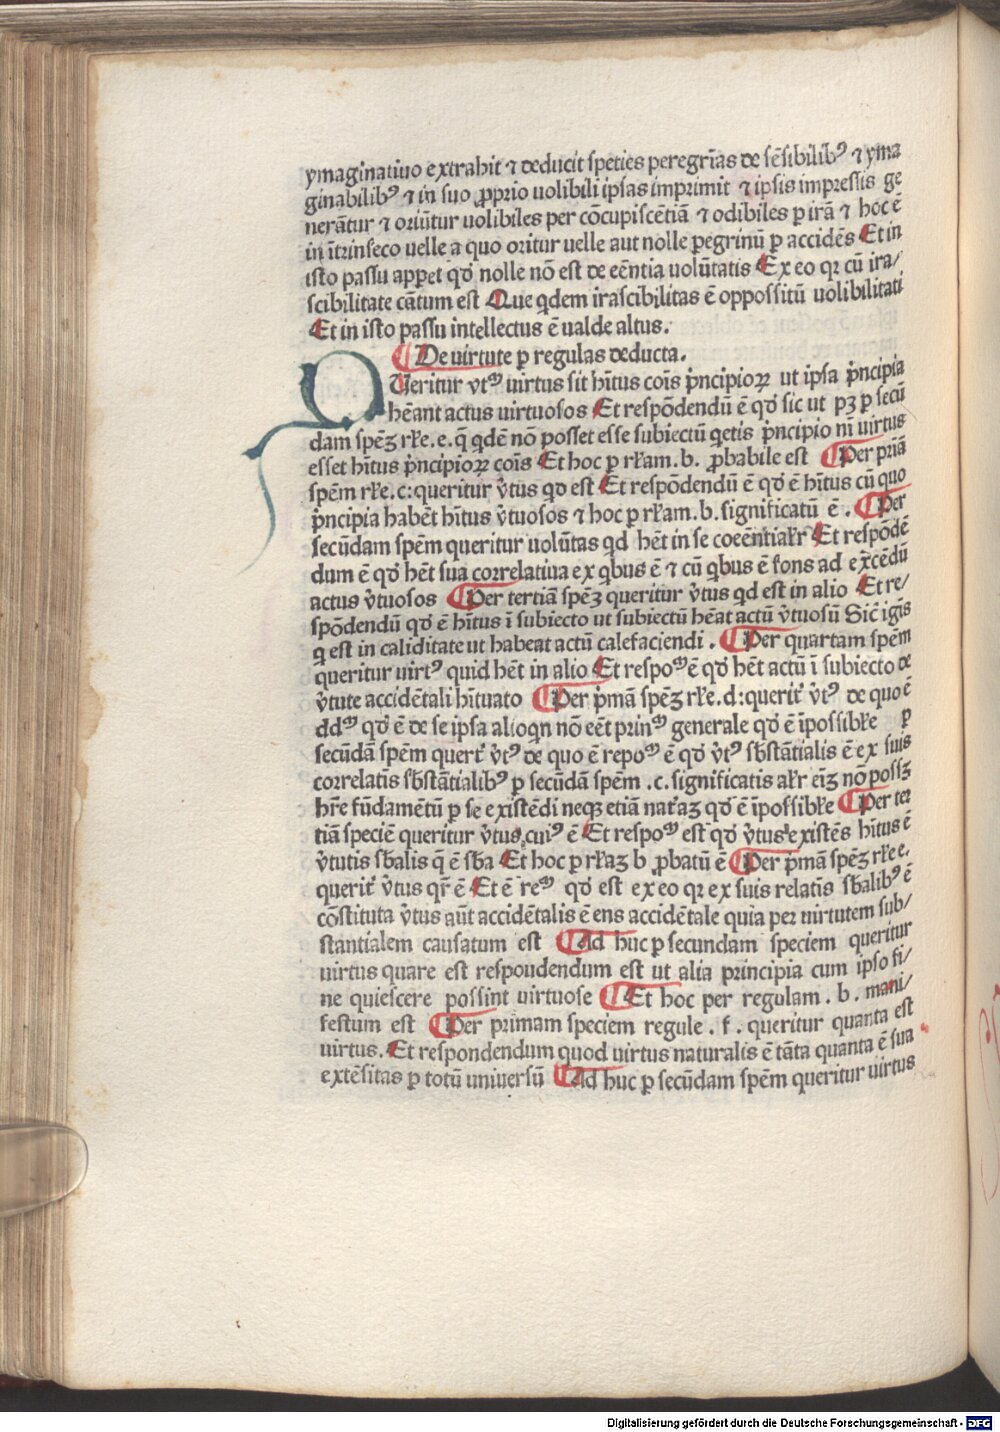 ymaginatiuo extrahit ⁊ deducit speties peregrīas de sēsibilibꝰ ⁊ yma
ginabilibꝰ ⁊ in suo ꝓprio uolibili ipsas imprimit ⁊ ipsis impressis ge
nerātur ⁊ oriūtur uolibiles per cōcupiscētiā ⁊ odibiles p irā ⁊ hoc ē
in ītrinseco uelle a quo oritur uelle aut nolle pegrinū p accidēs Et in
isto passu appet qđ nolle nō est de eēntia uolūtatis Ex eo qꝛ cū ira/
scibilitate cātum est Que qdem irascibilitas ē oppossitū uolibilitati
Et in isto passu intellectus ē ualde altus.
De uirtute p regulas deducta.
QUeritur vtꝝ uirtus sit hītus cōis pncipioꝝ ut ipsa pncipia
hēant actus uirtuosos Et respōdendū ē qđ sic ut pꝫ p secū
dam spēꝫ rłe.e. q̄ qdē nō posset esse subiectū qetis pncipio nī uirtus
esset hītus pncipioꝝ cōis Et hoc p rłam.b. ꝓbabile est Per priā
spēm rłe.c: queritur v̄tus qd est Et respōdendū ē qđ ē hītus cū quo
pncipia habēt hītus v̄tuosos ⁊ hoc p rłam.b. significatū ē. Per
secūdam spēm queritur uolūtas qd hēt in se coeēntialr Et respōdē
dum ē qđ hēt sua correlatiua ex qbus ē ⁊ cū qbus ē fons ad exc̄edū
actus v̄tuosos Per tertiā spēꝫ queritur v̄tus qd est in alio Et re/
spōdendū qđ ē hītus ī subiecto ut subiectū hēat actū v̄tuosū Sic̄ igīs
q est in caliditate ut habeat actū calefaciendi. Per quartam spēm
queritur uirtꝰ quid hēt in alio Et respoꝝ ē qđ hēt actū ī subiecto de
v̄tute accidētali hītuato Per pmā spēꝫ rłe.d: querit̄ v̄tꝰ de quo ē
ddꝝ qđ ē de se ipsa alioqn nō eēt prinꝝ generale qđ ē īpossibłe p
secūdā spēm quert̄ v̄tꝰ de quo ē repoꝝ ē qđ v̄tꝰ sbstātialis ē ex suis
correlatis sbstātialibꝰ p secūdā spēm .c. significatis ałr eiꝫ nō possꝫ
hr̄e fūdamētū p se existēdi neqꝫ etiā nat̄aꝫ qđ ē īpossibłe Per ter
tiā speciē queritur v̄tus cuiꝰ ē Et respoꝝ est qđ v̄tus existēs hītus ē
v̄tutis sbalis q̄ ē sba Et hoc p rłaꝫ b ꝓbatū ē Per pmā spēꝫ rłe e.
querit̄ v̄tus qr̄ ē Et ē reꝝ qđ est ex eo qꝛ ex suis relatis sbalibꝰ ē
cōstituta v̄tus aūt accidētalis ē ens accidētale quia per uirtutem sub/
stantialem causatum est Ad huc p secundam speciem queritur
uirtus quare est respondendum est ut alia principia cum ipso fi/
ne quiescere possint uirtuose Et hoc per regulam . b . mani/
festum est Per primam speciem regule . f . queritur quanta est
uirtus. Et respondendum quod uirtus naturalis ē tāta quanta ē sua
extēsitas p totū uniuersū Ad huc p secūdam spēm queritur uirtus
Digitalisierung gefördert durch die Deutsche Forschungsgemeinschaft - DFG